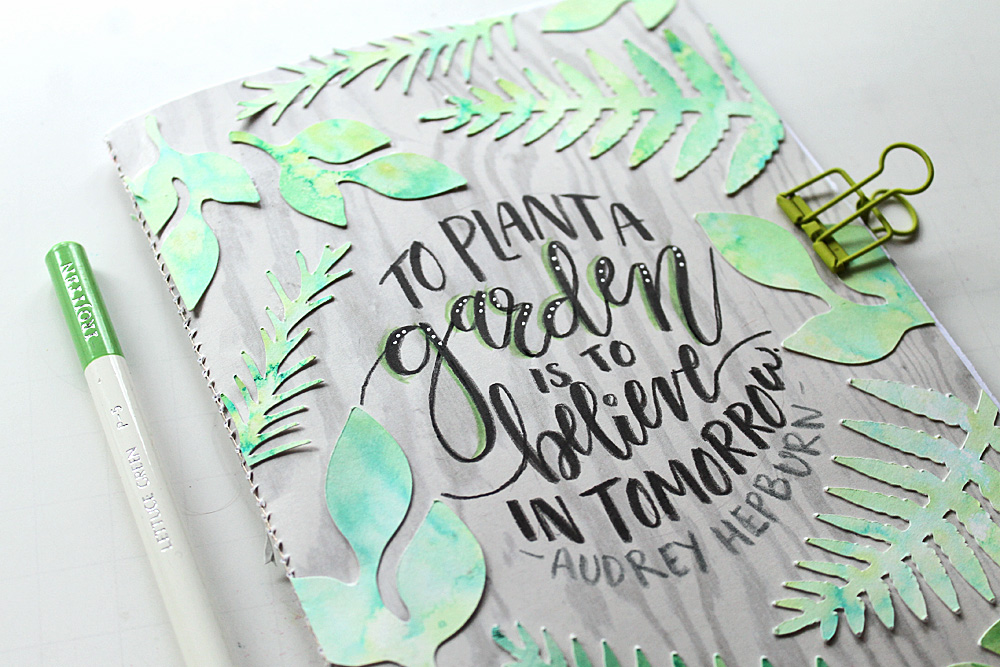 TO PLANT A
garden
IS TO
believe
IN TOMORROW.
-AUDREY HEPBURN-
LETTUCE GREEN P-5